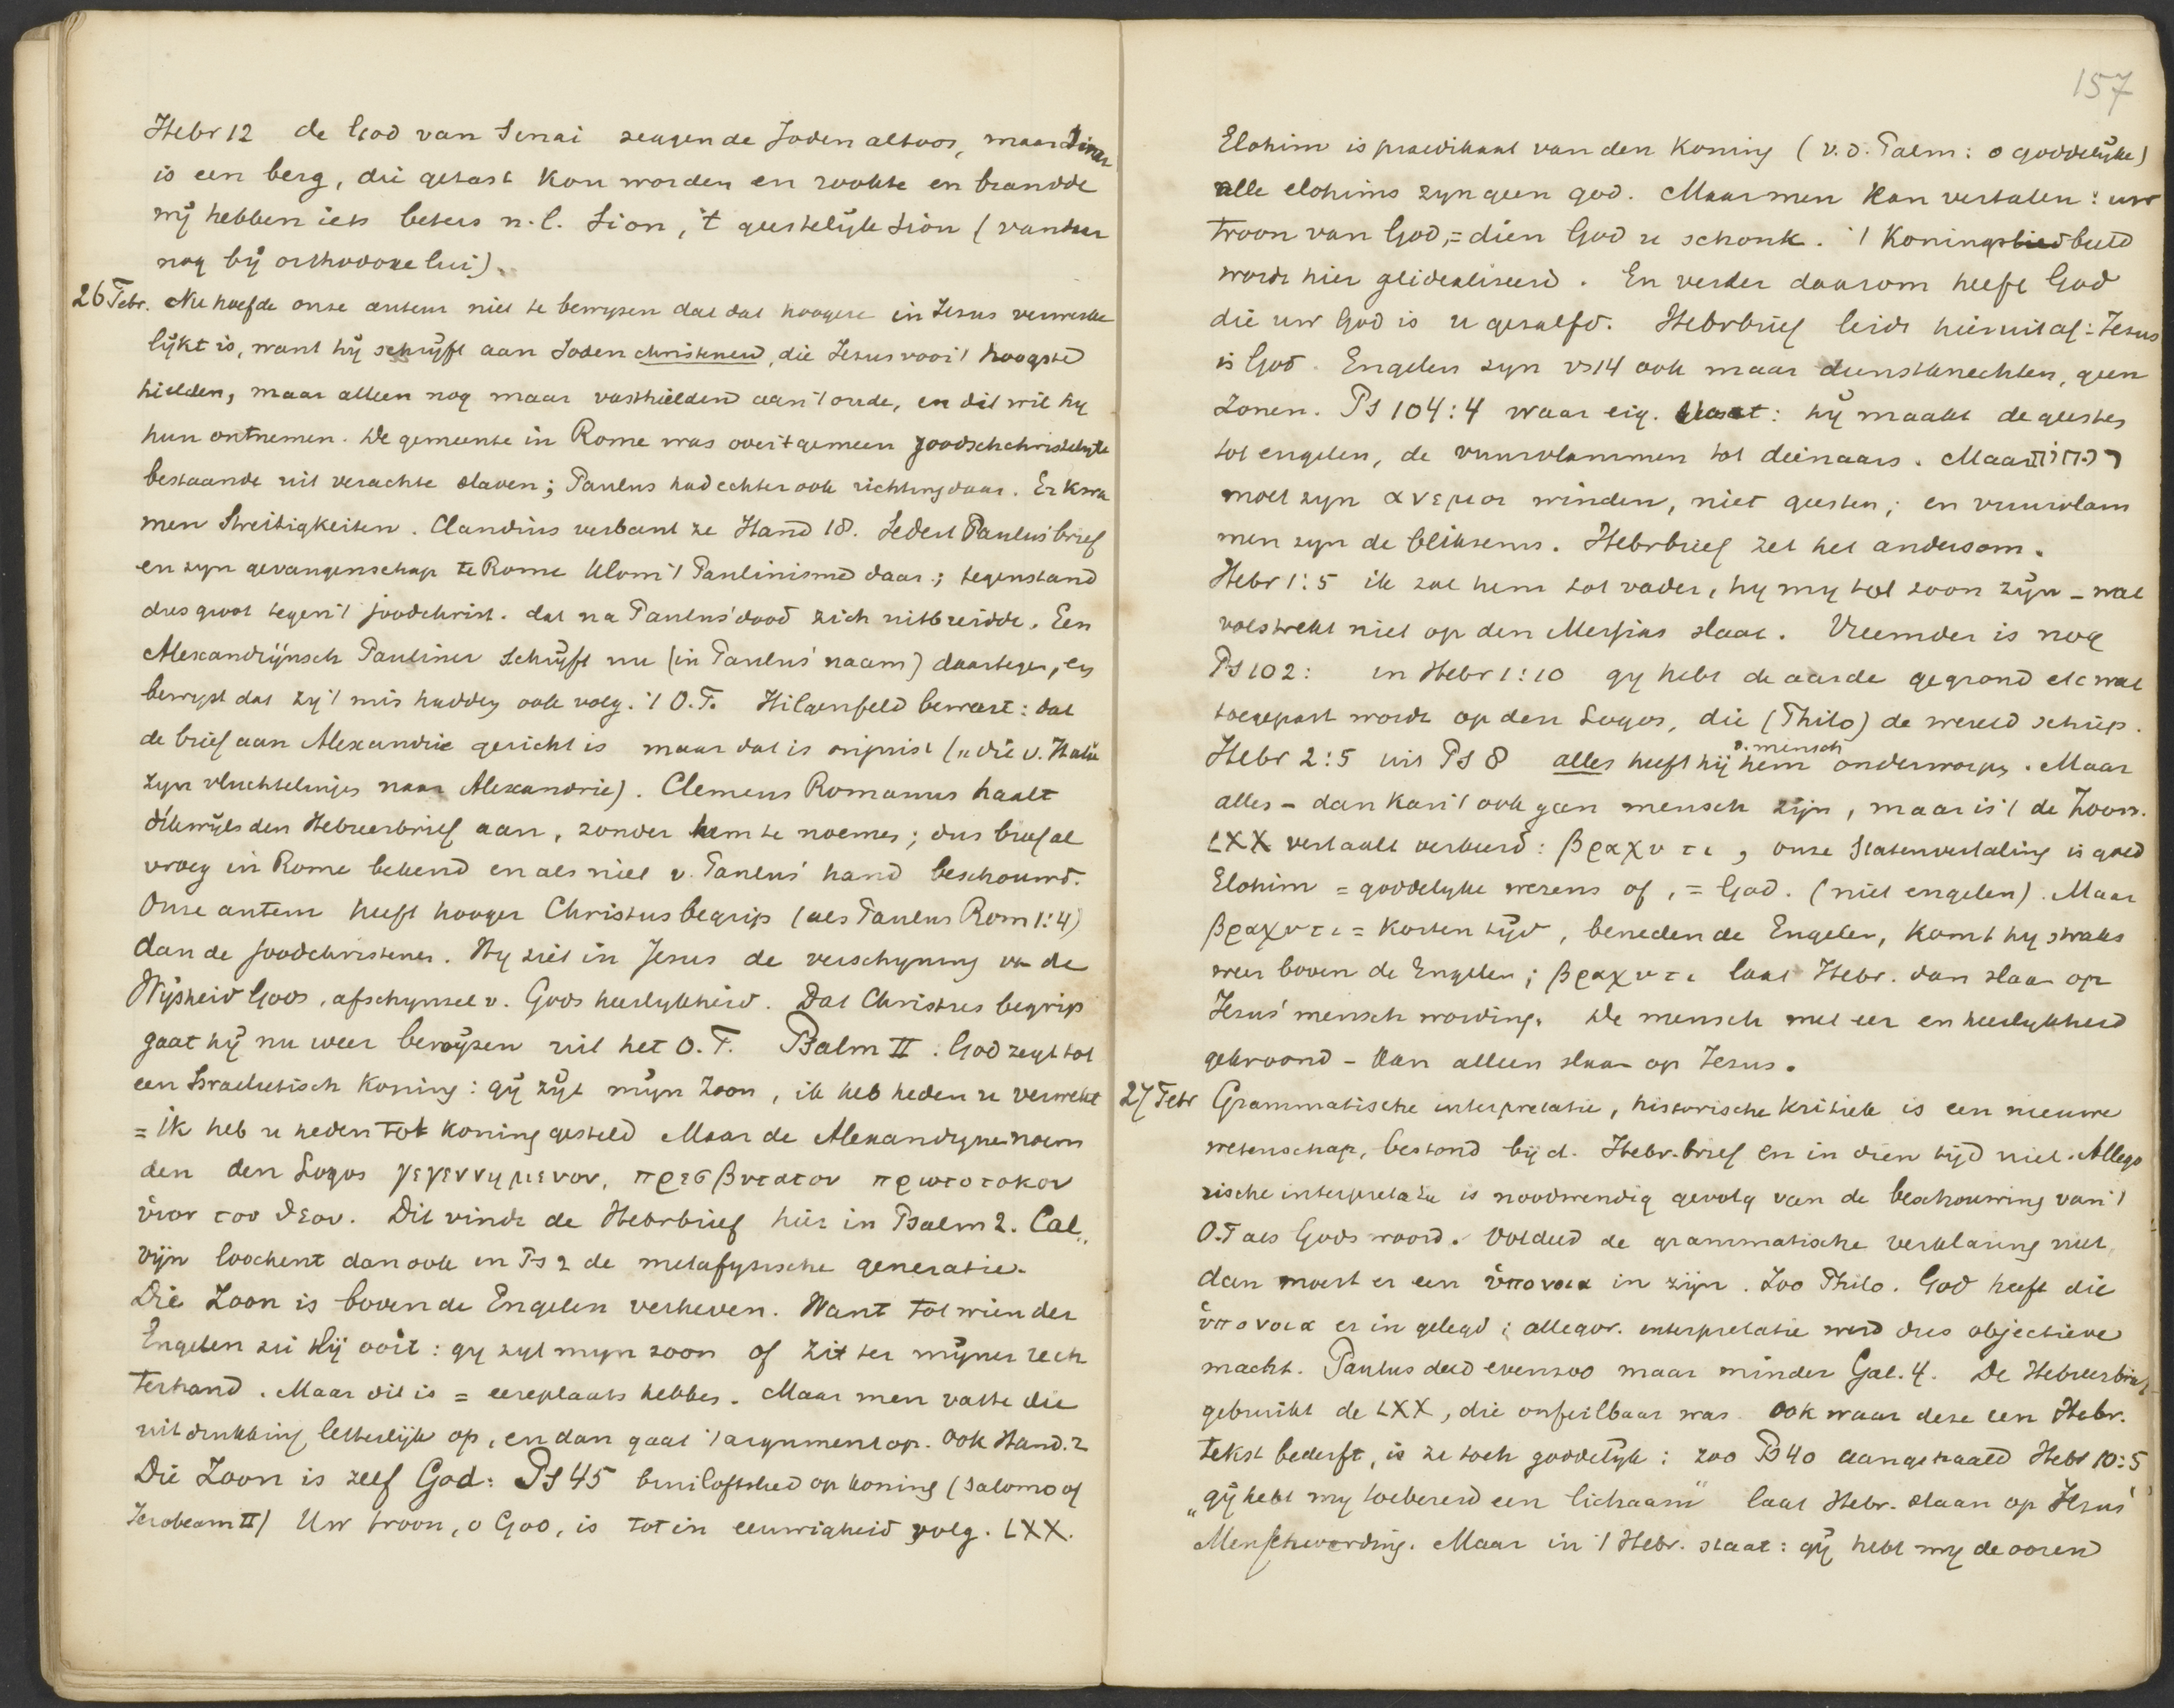 Hebr 12 de God van Sinai zeggen de Joden altoos, maar Sinai
is een berg, die getast kon worden en rookte en brandde
wij hebben iets beters n.l. Sion, 't geestelijk Sion (vandaar
nog bij orthodoxe lui).
26 Febr. Nu hoefde onze auteur niet te bewijzen dat dat hoogere in Jesus verwerke
lijkt is, want hij schrijft aan Joden christenen, die Jesus voor 't hoogste
hielden, maar alleen nog maar vasthielden aan 't oude, en dit wil hy
hun ontnemen. De gemeente in Rome was over 't gemeen joodschchristelyk
bestaande uit verachte slaven; Paulus had echter ook richting daar. Er kwa
men Streitigkeiten. Claudius verbant ze Hand 18. Sedert Paulus' brief
en zyn gevangenschap te Rome klom 't Paulinisme daar; tegenstand
dus groot tegen 't joodchrist. dat na Paulus' dood zich uitbreidde. Een
Alexandrijnsch Pauliner schrijft nu (in Paulus' naam) daartegen, en
bewyst dat zy 't mis hadden ook volg. 't O.T. Hilgenfeld beweert: dat
de brief aan Alexandrie gericht is maar dat is onjuist („die v. Italie
zyn vluchtelinjes naar Alexandrie). Clemens Romanus haalt
dikwijls den Hebreerbrief aan, zonder hem te noemen; dus brief al
vroeg in Rome bekend en als niet v. Paulus' hand beschouwd.
Onze auteur heeft hooger Christusbegrip (als Paulus Rom 1:4)
dan de joodchristenen. Hy ziet in Jesus de verschyning v de
Wijsheid Gods, afschynsel v. Gods heerlykheid. Dat Christus begrip
gaat hij nu weer bewijzen uit het O.T. Psalm II: God zegt tot
een Israelietisch Koning: gij zijt mijn Zoon, ik heb heden u verwekt
= ik heb u heden tot koning gesteld Maar de Alexandryne noem
den den Logos γεγεννημενον, πρεσβυτατον πρωτοτοκον
υἱον του θεου. Dit vindt de Hebrbrief hier in Psalm 2. Cal„
vijn loochent dan ook in Ps 2 de metafysische generatie.
Die Zoon is boven de Engelen verheven. Want tot wien der
Engelen zei Hij ooit: gy zyt myn zoon of zit ter mijner rech
terhand. Maar dit is = eereplaats hebben. Maar men vatte die
uitdrukking letterlijk op, en dan gaat 't argument op. Ook Hand. 2
Die Zoon is zelf God: Ps 45 bruiloftslied op koning (Salomo of
Jerobeam II) Uw troon, o God, is tot in eeuwigheid volg. LXX.
157
Elohim is praedikaat van den Koning (v.d. Palm: o goddelijke)
alle elohims zyn geen god. Maar men kan vertalen: uw
troon van God, = dien God u schonk. 't Koningsbeeld
wordt hier geidealiseerd. En verder daarom heeft God
die uw God is u gezalfd. Hebrbrief leidt hieruit af: Jesus
is God. Engelen zyn vs 14 ook maar dienstknechten, geen
Zonen. Ps 104:4 waar eig. staat: hij maakt de geesten
tot engelen, de vuurvlammen tot dienaars. Maar רוחות
moet zyn ανεμοι winden, niet geesten; en vuurvlam
men zyn de bliksems. Hebrbrief zet het andersom.
Hebr 1:5 ik zal hem tot vader, hy my tot zoon zijn – wat
volstrekt niet op den Messias slaat. Vreemder is nog
Ps 102: in Hebr 1:10 gy hebt de aarde gegrond etc wat
toegepast wordt op den Logos, die (Philo) de wereld schiep.
Hebr 2:5 uit Ps 8 alles heeft hij hem d. mensch onderworpen. Maar
alles – dan kan 't ook geen mensch zijn, maar is 't de Zoon.
LXX vertaalt verkeerd: βραχυ τι, onze Statenvertaling is goed
Elohim = goddelyke wezens of, = God. (niet engelen). Maar
βραχυ τι = korten tijd, beneden de Engelen, komt hy straks
weer boven de Engelen; βραχυ τι laat Hebr. dan slaan op
Jesus' mensch wording. De mensch met eer en heerlykheid
gekroond – kan alleen slaan op Jesus.
27 Febr Grammatische interpretatie, historische kritiek is een nieuwe
wetenschap, bestond bij d. Hebr.brief en in dien tijd niet. Allego
rische interpretatie is noodwendig gevolg van de beschouwing van 't
O.T als Gods woord. Voldeed de grammatische verklaring niet,
dan moest er een ὑπονοια in zijn. Zoo Philo. God heeft die
ὑπονοια er in gelegd; allegor. interpretatie werd dus objectieve
macht. Paulus deed evenzoo maar minder Gal. 4. De Hebreerbrief
gebruikt de LXX, die onfeilbaar was. Ook waar deze een Hebr.
tekst bederft, is ze toch goddelijk: zoo Ps 40 aangehaald Hebr 10:5
„gij hebt my toebereid een lichaam" laat Hebr. slaan op Jesus'
Menschwording. Maar in 't Hebr. staat: gij hebt my de ooren